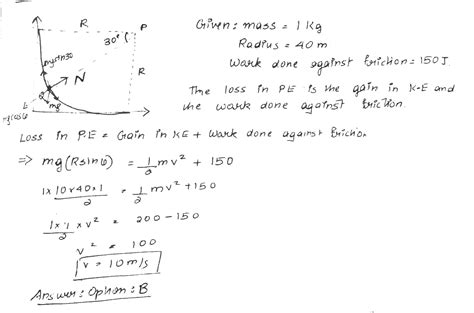 R
P
30°
R
mgsin30
N
mg
mgcosθ
Given: mass = 1 Kg
Radius = 40 m
Work done against friction = 150 J.
The loss in PE is the gain in K-E and
the work done against friction.
Loss in P.E = Gain in KE + Work done against friction
⇒ mg(Rsinθ) = 1/2 mv² + 150
1×10×40×1/2 = 1/2 mv² + 150
1×1/2 × v² = 200 - 150
v² = 100
v = 10 m/s
Answer: Option: B